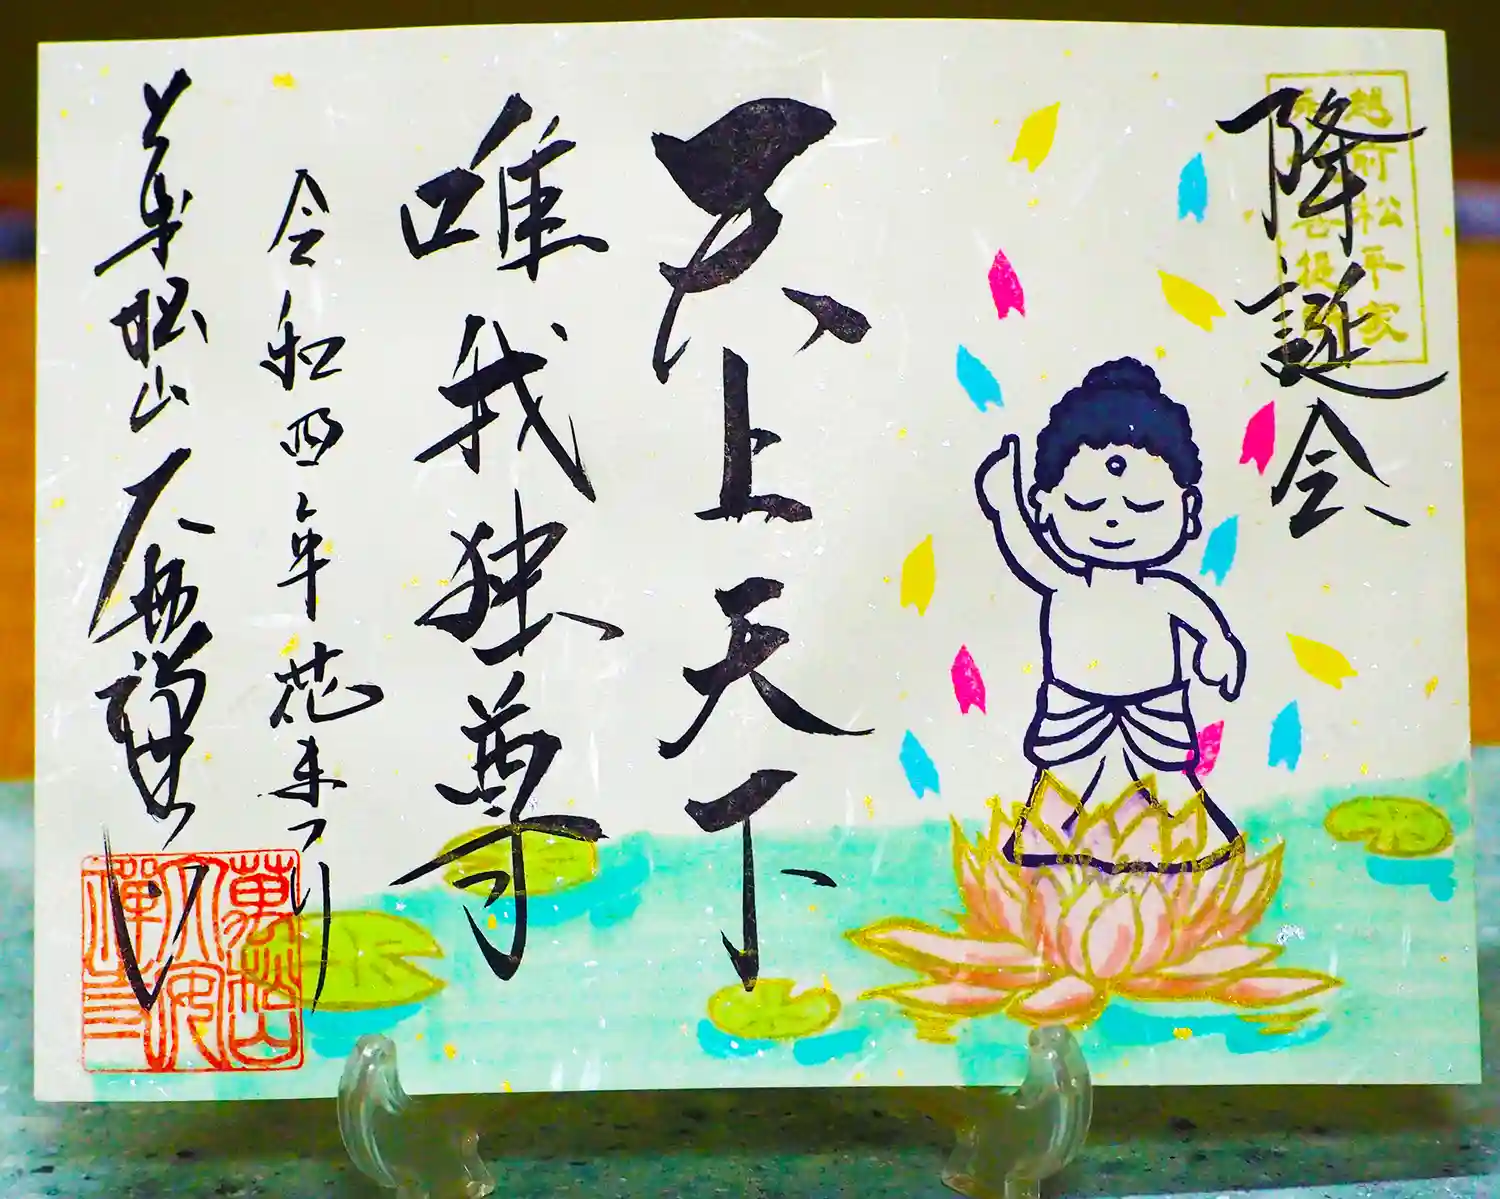 降誕会
越前松平家
天上天下
唯我独尊
令和四年花まつり
萬松山大安禅寺
萬松山大安禅寺